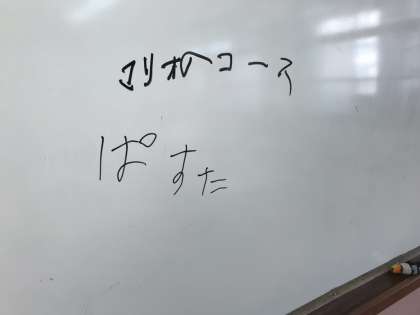 マリオへコース
ぱすた